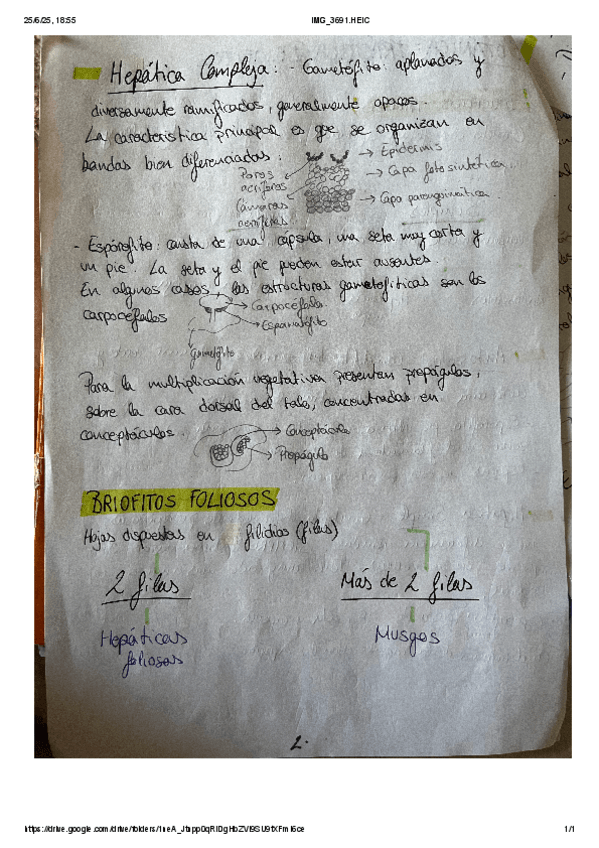 25/6/25, 18:55
IMG_3691.HEIC
Hepática Compleja: - Gametófito: aplanados y
diversamente ramificados, generalmente opacos.
La característica principal es que se organizan en
bandas bien diferenciadas:
→ Epidermis
Poros aeríferos
→ Capa fotosintética
Cámaras aeríferas
→ Capa parenquimática
- Esporófito: consta de una cápsula, una seta muy corta y
un pie. La seta y el pie pueden estar ausentes.
En algunos casos, las estructuras gametofíticas son los
carpocéfalos
→ Carpocéfalo
→ Espamatófito
Gametófito
Para la multiplicación vegetativa presentan propágulos,
sobre la cara dorsal del talo, concentradas en
conceptáculos.
→ Conceptáculo
→ Propágulo
BRIOFITOS FOLIOSOS
Hojas dispuestas en filidios (filas)
2 filas
Más de 2 filas
Hepáticas
foliosas
Musgos
2.
1/1